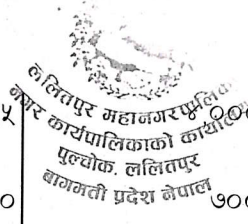 ललितपुर महानगरपालिका
नगर कार्यपालिकाको कार्यालय
पुल्चोक, ललितपुर
बागमती प्रदेश नेपाल
५
०